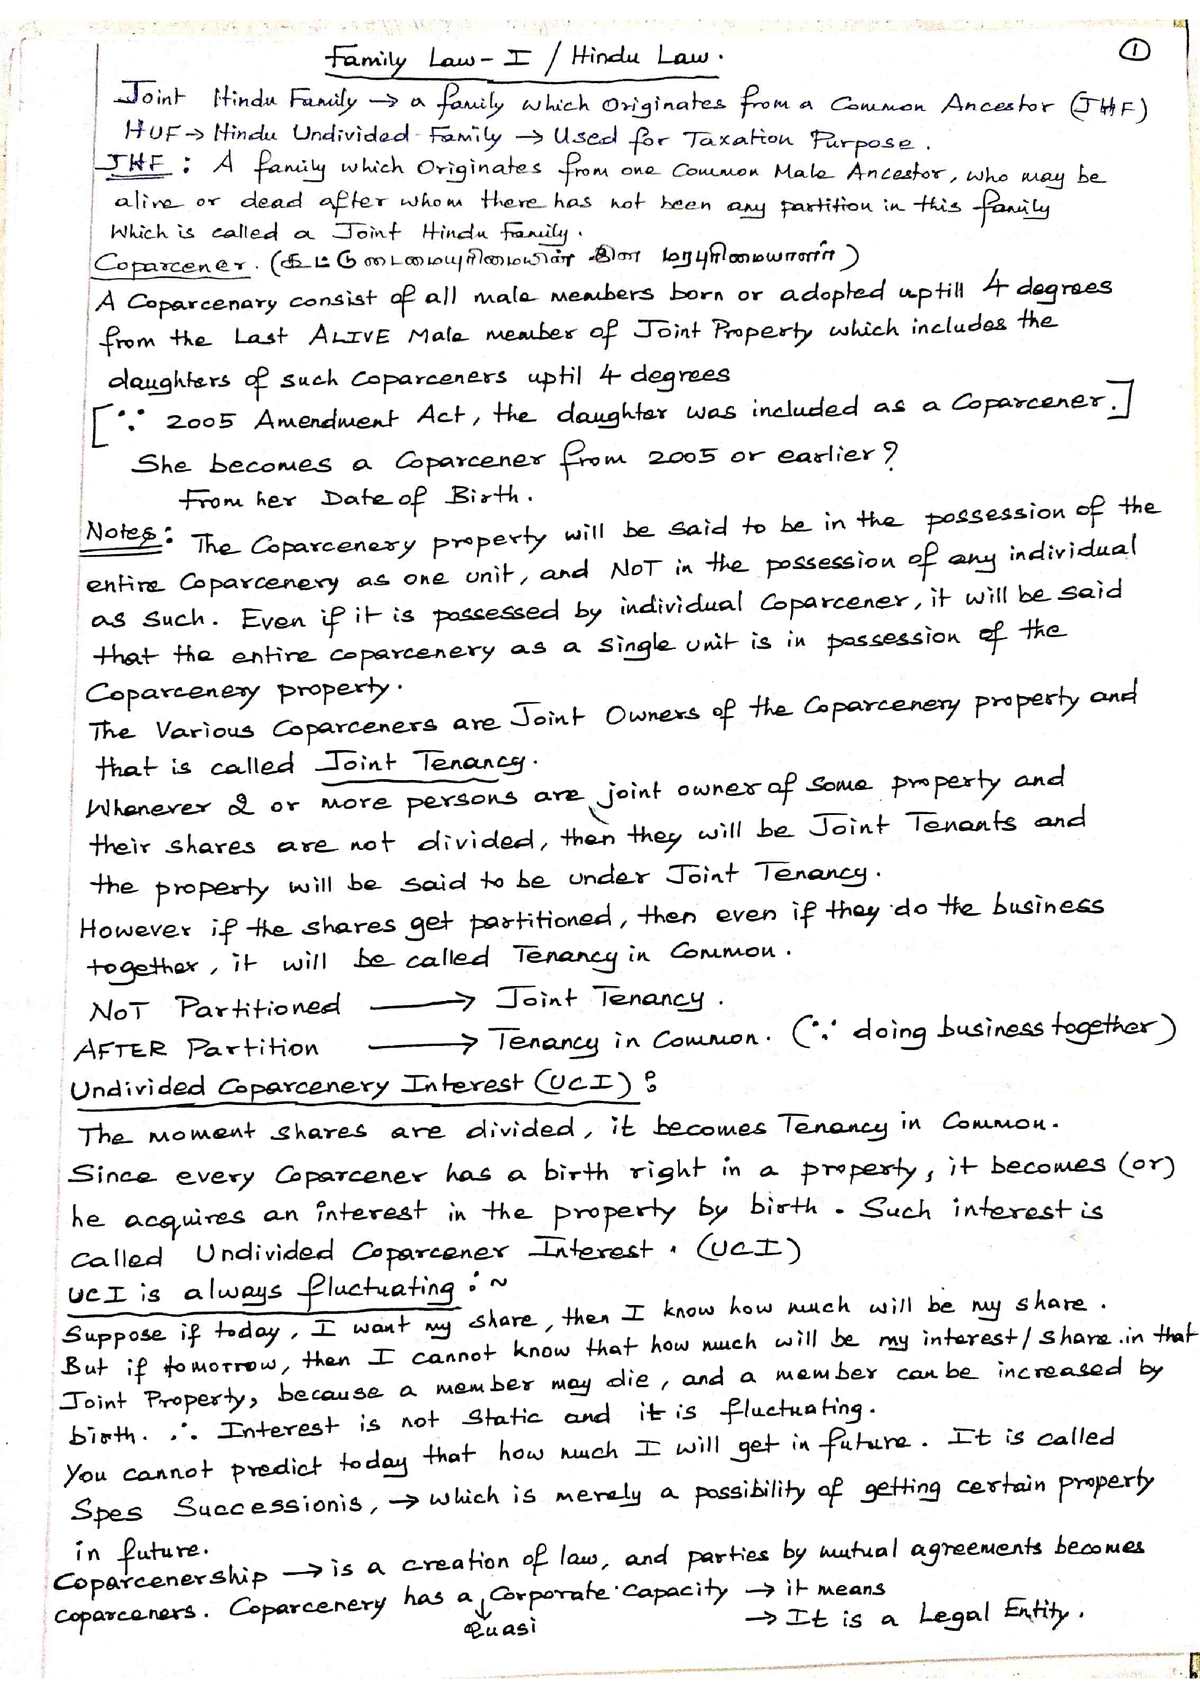 Family Law - I / Hindu Law.
1
Joint Hindu Family → a family which Originates from a Common Ancestor (JHF)
HUF → Hindu Undivided Family → Used for Taxation Purpose.
JHF : A family which Originates from one Common Male Ancestor, who may be
alive or dead after whom there has not been any partition in this family
which is called a Joint Hindu Family.
Coparcener. (கூட்டுடைமையுரிமையின் இள மரபுரிமையாளர்)
A Coparcenary consist of all male members born or adopted uptill 4 degrees
from the Last ALIVE Male member of Joint Property which includes the
daughters of such Coparceners uptil 4 degrees
[∵ 2005 Amendment Act, the daughter was included as a Coparcener.]
She becomes a Coparcener from 2005 or earlier?
From her Date of Birth.
Notes: The Coparcenery property will be said to be in the possession of the
entire Coparcenery as one unit, and NOT in the possession of any individual
as such. Even if it is possessed by individual Coparcener, it will be said
that the entire coparcenery as a single unit is in possession of the
Coparcenery property.
The Various Coparceners are Joint Owners of the Coparcenery property and
that is called Joint Tenancy.
Whenever 2 or more persons are joint owner of some property and
their shares are not divided, then they will be Joint Tenants and
the property will be said to be under Joint Tenancy.
However if the shares get partitioned, then even if they do the business
together, it will be called Tenancy in Common.
NOT Partitioned → Joint Tenancy.
AFTER Partition → Tenancy in Common. (∵ doing business together)
Undivided Coparcenery Interest (UCI) :
The moment shares are divided, it becomes Tenancy in Common.
Since every Coparcener has a birth right in a property, it becomes (or)
he acquires an interest in the property by birth. Such interest is
called Undivided Coparcener Interest. (UCI)
UCI is always fluctuating :~
Suppose if today, I want my share, then I know how much will be my share.
But if tomorrow, then I cannot know that how much will be my interest/share in that
Joint Property, because a member may die, and a member can be increased by
birth. ∴ Interest is not static and it is fluctuating.
You cannot predict today that how much I will get in future. It is called
Spes Successionis, → which is merely a possibility of getting certain property
in future.
Coparcenership → is a creation of law, and parties by mutual agreements becomes
coparceners. Coparcenery has a ↓ Corporate Capacity → it means
Quasi → It is a Legal Entity.